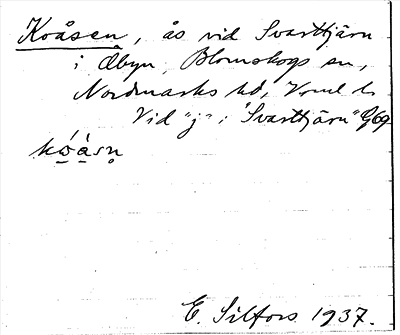 Koåsen, ås vid Svarttjärn
i Åbyn, Blomskogs sn,
Nordmarks hd, Verml l.
Vid "j" i "Svarttjärn" G69
E. Silfors 1937.